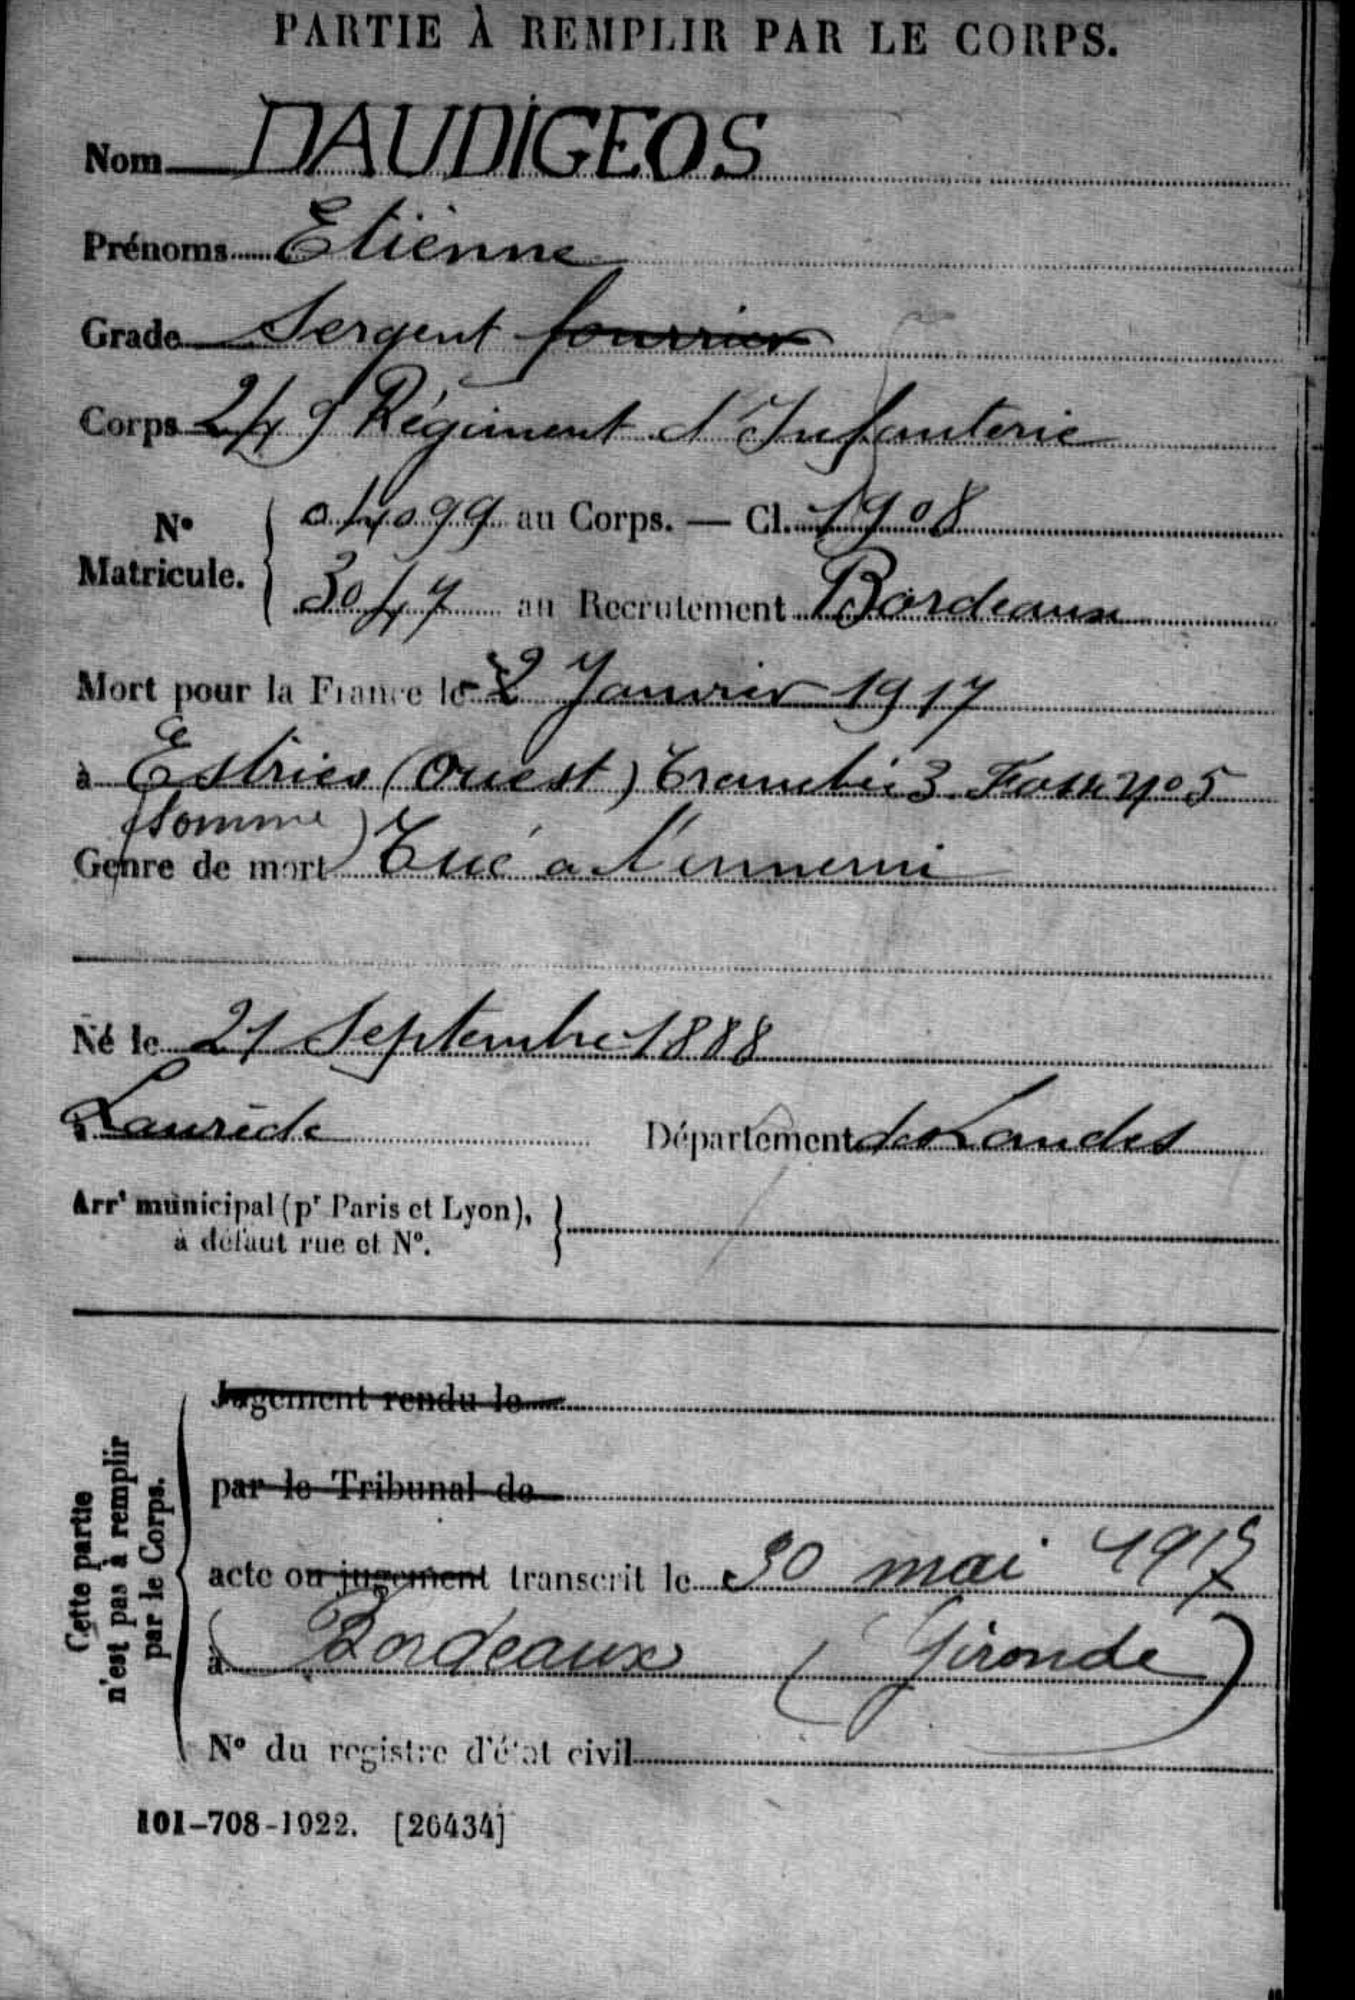 PARTIE À REMPLIR PAR LE CORPS.
Nom DAUDIGEOS
Prénoms Etienne
Grade Sergent fourrier
Corps 249 Régiment d'Infanterie
N° Matricule. 04099 au Corps. — Cl. 1908
3047 au Recrutement Bordeaux
Mort pour la France le 2 Janvier 1917
à Estries (Ouest) Tranchée 3
(Somme)
Genre de mort Tué à l'ennemi
Né le 21 Septembre 1888
Laurède Département des Landes
Arrt municipal (pr Paris et Lyon),
à défaut rue et N°.
Jugement rendu le
par le Tribunal de
acte ou jugement transcrit le 30 mai 1917
à Bordeaux (Gironde)
N° du registre d'état civil
Cette partie
n'est pas à remplir
par le Corps.
101-708-1922. [26434]